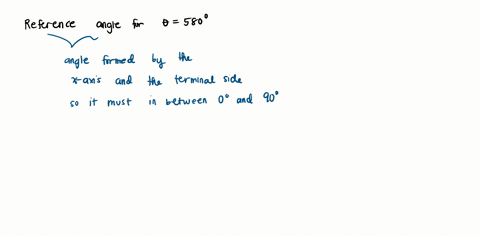 Reference angle for θ = 580°
angle formed by the
x-axis and the terminal side
so it must in between 0° and 90°